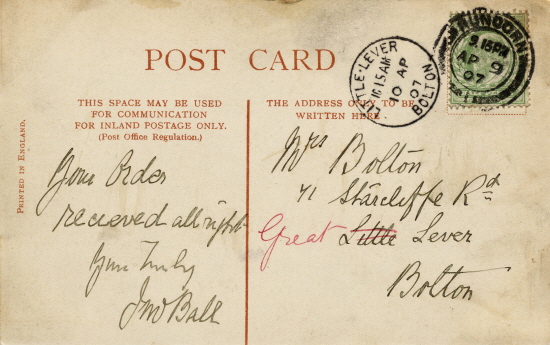 POST CARD
THIS SPACE MAY BE USED
FOR COMMUNICATION
FOR INLAND POSTAGE ONLY.
(Post Office Regulation.)
PRINTED IN ENGLAND.
Your Order
recieved all right
Your Truly
Jno Ball
THE ADDRESS ONLY TO BE
WRITTEN HERE.
Mrs Bolton
71 Starcliffe Rd
Great Little Lever
Bolton
LITTLE-LEVER
BOLTON
11 15AM
10 AP
07
RUNCORN
9.15PM
AP 9
07